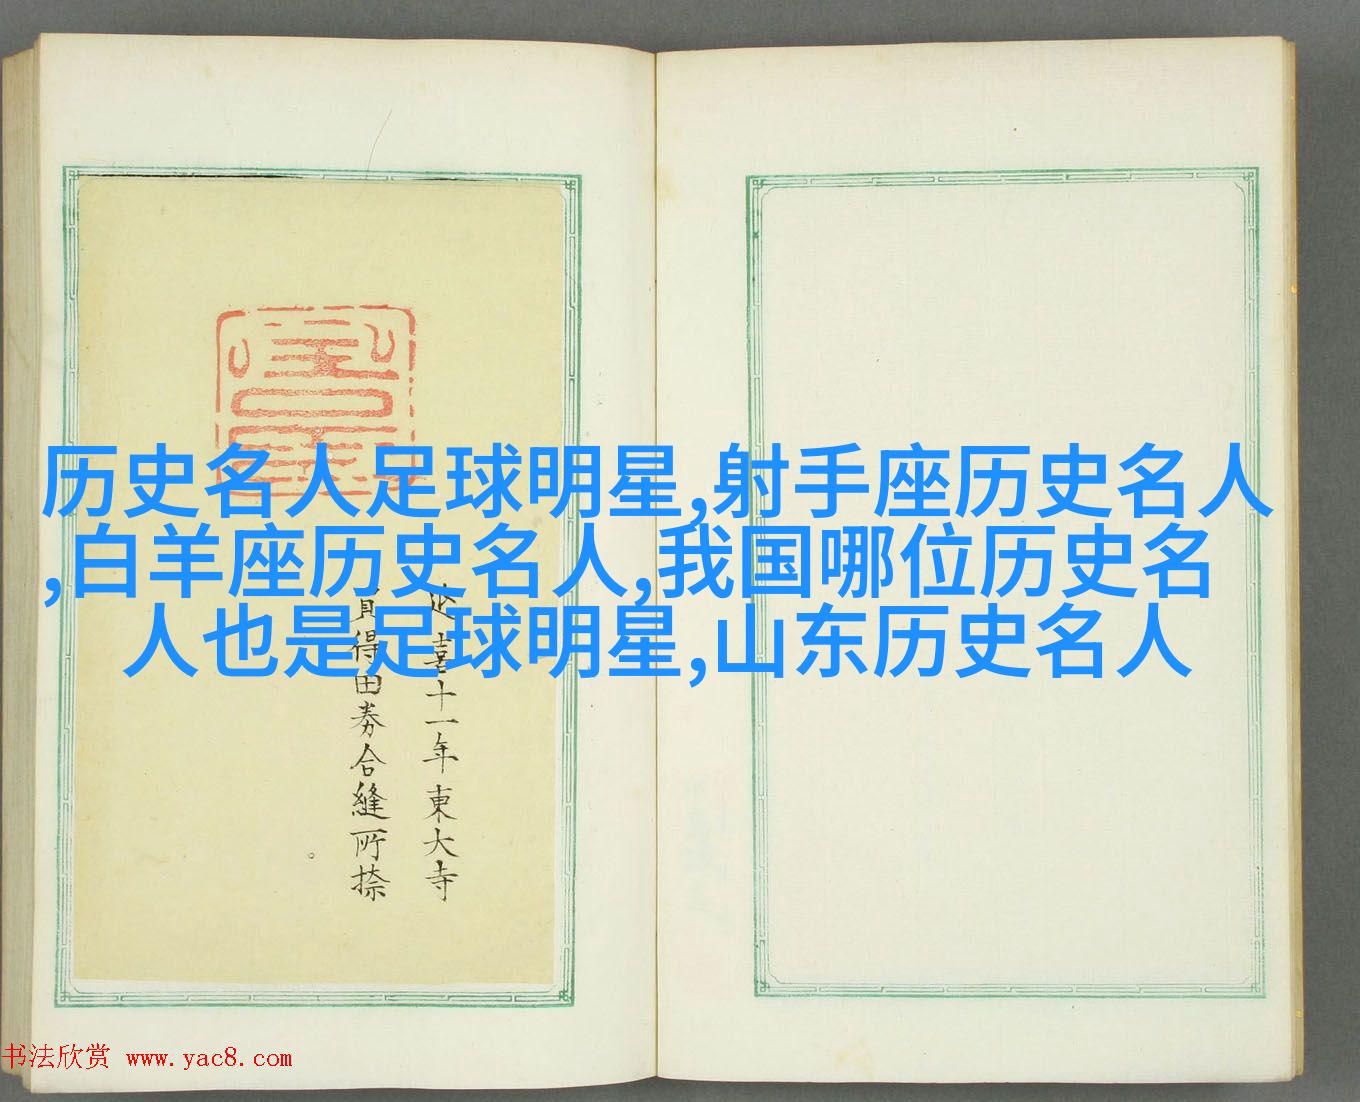 历史名人足球明星,射手座历史名人
,白羊座历史名人,我国哪位历史名
人也是足球明星,山东历史名人
延喜十一年東大寺
買得田券合縫所捺
书法欣赏 www.yac8.com